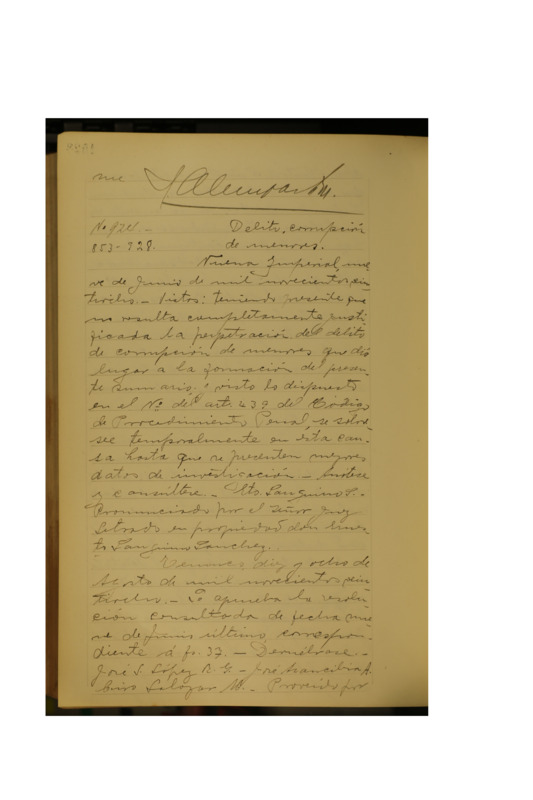 me
No 924.— Delito, corrupción
853-928. de menores.
Nueva Imperial, nue
ve de Junio de mil novecientos vein
tiocho.— Vistos: teniendo presente que
no resulta completamente justi
ficada la perpetración del delito
de corrupción de menores que dió
lugar a la formación del presen-
te sumario, i visto lo dispuesto
en el No del art. 439 del Código
de Procedimiento Penal, se sobre-
see temporalmente en esta cau-
sa hasta que se presenten mejores
datos de investigación.— Anótese
y consúltese.— Eto. Sanguino S.—
Pronunciado por el señor Juez
Letrado en propiedad don Ernes-
to Sanguino Sanchez.
Temuco, diez y ocho de
Agosto de mil novecientos vein
tiocho.— Se aprueba la resolu-
ción consultada de fecha nue
ve de Junio último, correspon-
diente á fs. 37.— Devuélvase.—
José S. López R. G.— José Arancibia A.
Salazar M.— Proveido por